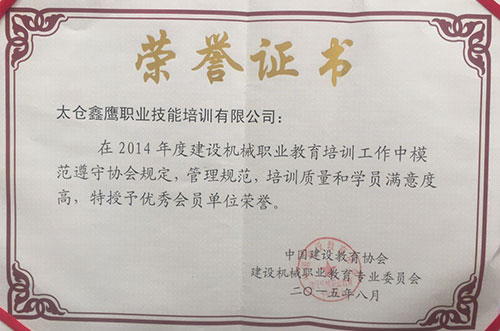 荣誉证书
太仓鑫鹰职业技能培训有限公司：
在2014年度建设机械职业教育培训工作中模
范遵守协会规定，管理规范，培训质量和学员满意度
高，特授予优秀会员单位荣誉。
中国建设教育协会
建设机械职业教育专业委员会
二〇一五年八月